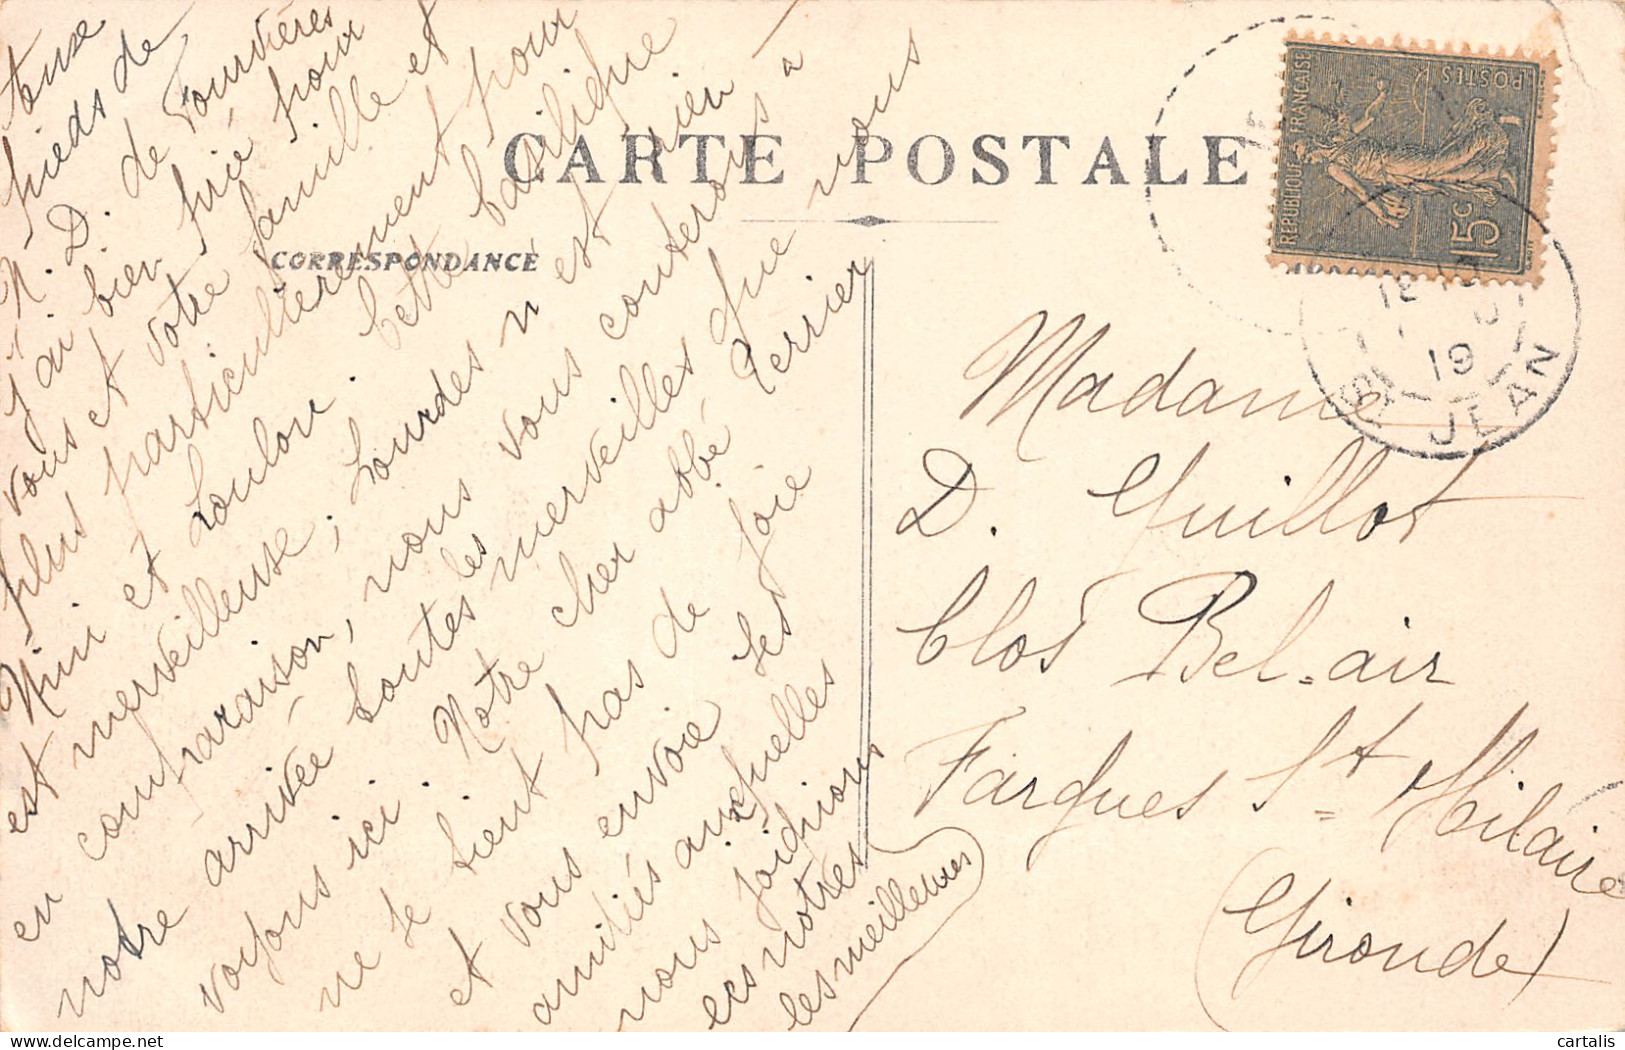 CARTE POSTALE
CORRESPONDANCE
aux
pieds de
N. D. de Fourvières
j'ai bien prié pour
vous et votre famille et
plus particulièrement pour
Nini et Loulou. Cette basilique
est merveilleuse, Lourdes n'est rien
en comparaison, nous vous conterons à
notre arrivée toutes les merveilles que nous
voyons ici. Notre cher abbé Perrier
ne se tient pas de joie
et vous envoie ses
amitiés auxquelles
nous joignons
les nôtres
les meilleures
Madame
D. Guillot
Clos Bel-air
Fargues St Hilaire
(Gironde)
REPUBLIQUE FRANÇAISE
POSTES
15c
19
JEAN
cartalis